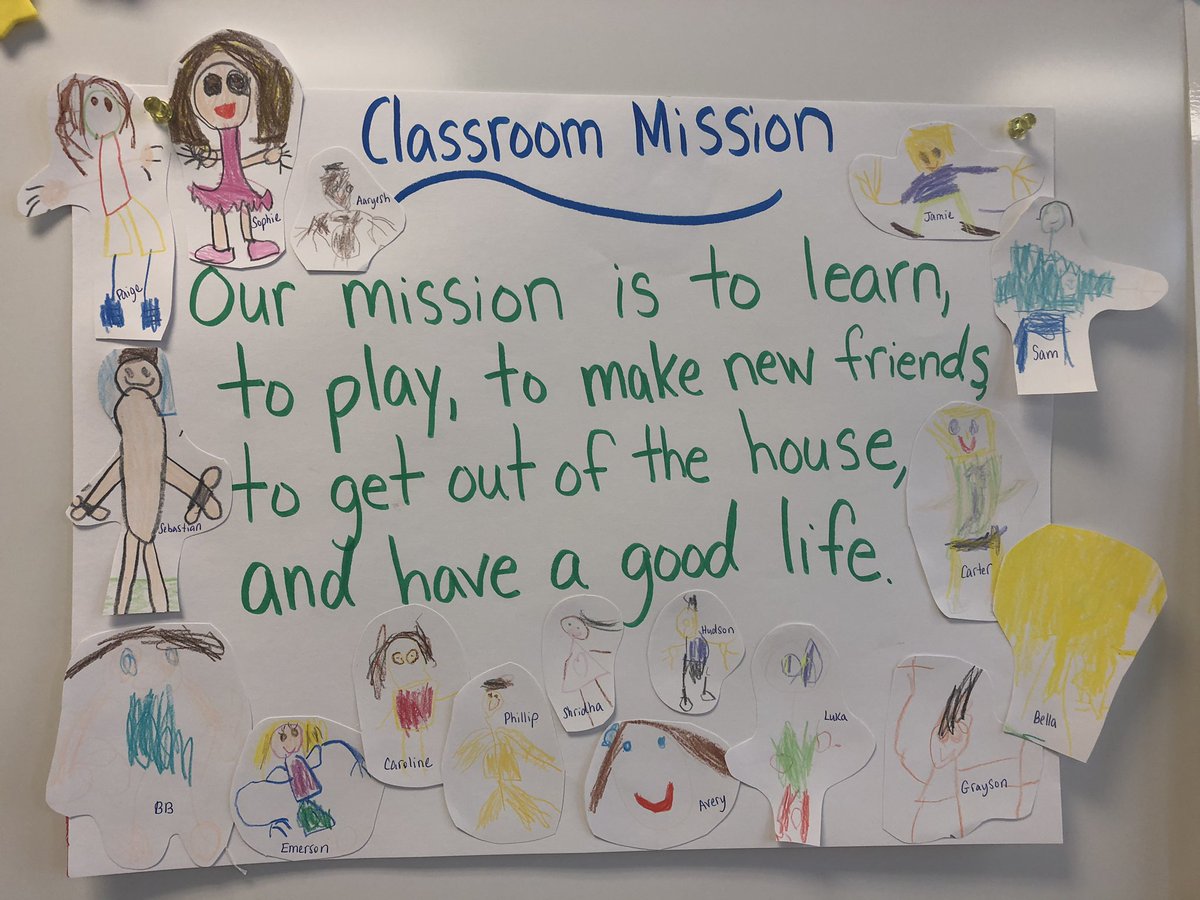 Classroom Mission
Our mission is to learn,
to play, to make new friends,
to get out of the house,
and have a good life.
Paige
Sophie
Aaryesh
Jamie
Sam
Sebastian
Carter
BB
Emerson
Caroline
Phillip
Shridha
Hudson
Avery
Luka
Grayson
Bella